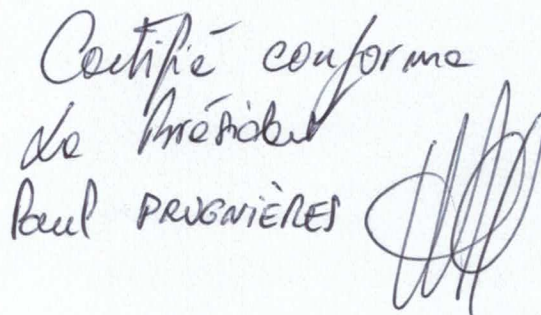 Certifié conforme
Le Président
Paul PRUGNIÈRES